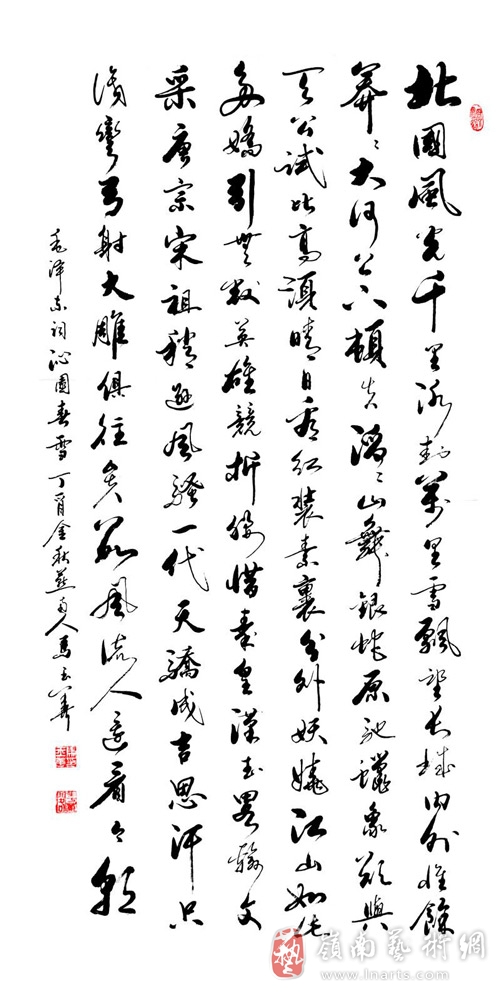 北國風光千里冰封萬里雪飄望長城内外惟餘
莽々大河上下頓失滔々山舞銀蛇原馳蠟象欲與
天公試比高須晴日看红装素裹分外妖娆江山如此
多嬌引無數英雄競折腰惜秦皇漢武略輸文
采唐宗宋祖稍遜風騷一代天驕成吉思汗只
識彎弓射大雕俱往矣數風流人還看今朝
毛澤东詞沁園春雪丁酉金秋燕南人馬玉華
藝 嶺南藝術網
www.lnarts.com